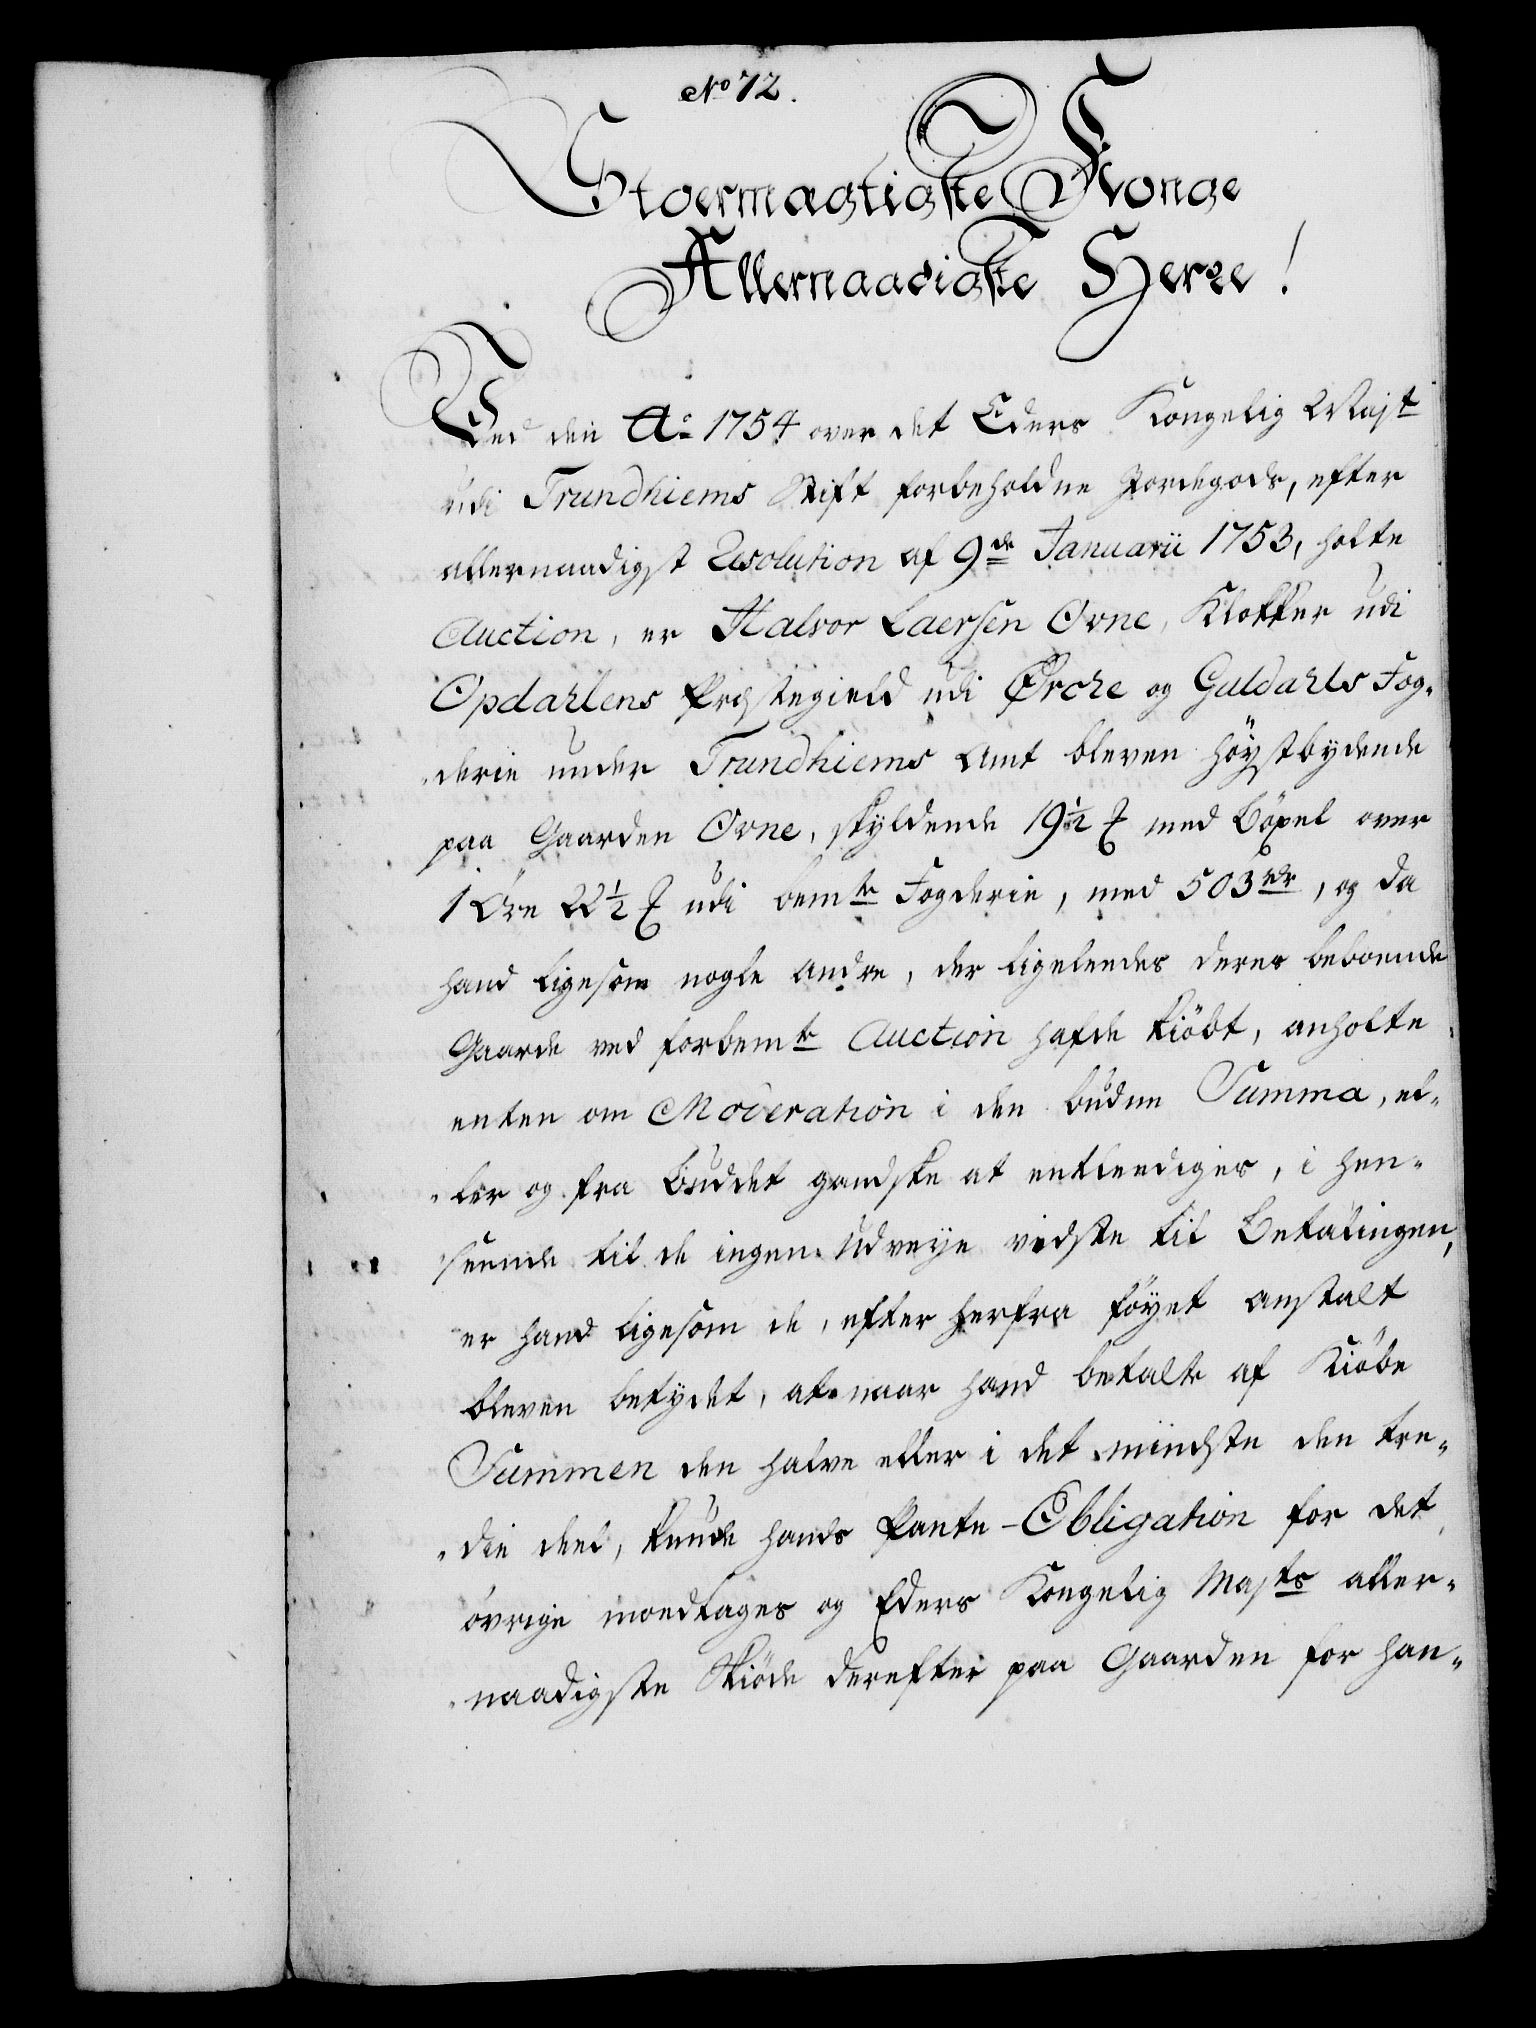 No 72.
Stoermægtigste Konge
Allernaadigste Herre!
Ved den Ao 1754 over det Eders Kongelig Majt
udi Trundhiems Stift forbeholdne Jordegods, efter
allernaadigst Resolution af 9de Januarii 1753, holte
Auction, er Halvor Laersen Ovne, Klokker udi
Opdahlens Præstegield udi Ørche og Guldahls Fog-
derie under Trundhiems Amt bleven höystbydende
paa Gaarden Ovne, skyldende 19½ med Böxel over
1 Öre 22½ udi bemte Fogderie, med 503 rdr, og da
hand ligesom nogle andre, der ligeleedes deres beboende
Gaarde ved forbemte Auction hafde kiöbt, anholte
enten om Moderation i den budne Summa, el-
ler og fra Buddet gandske at entleediges, i hen-
seende til de ingen Udveye vidste til Betalingen,
er hand ligesom de, efter herfra föyet anstalt
bleven betydet, at naar hand betalte af Kiöbe
Summen den halve eller i det mindste den tre-
die deel, kunde hands Pante-Obligation for det
övrige modtages og Eders Kongelig Majts aller-
naadigste Skiöde derefter paa Gaarden for han-